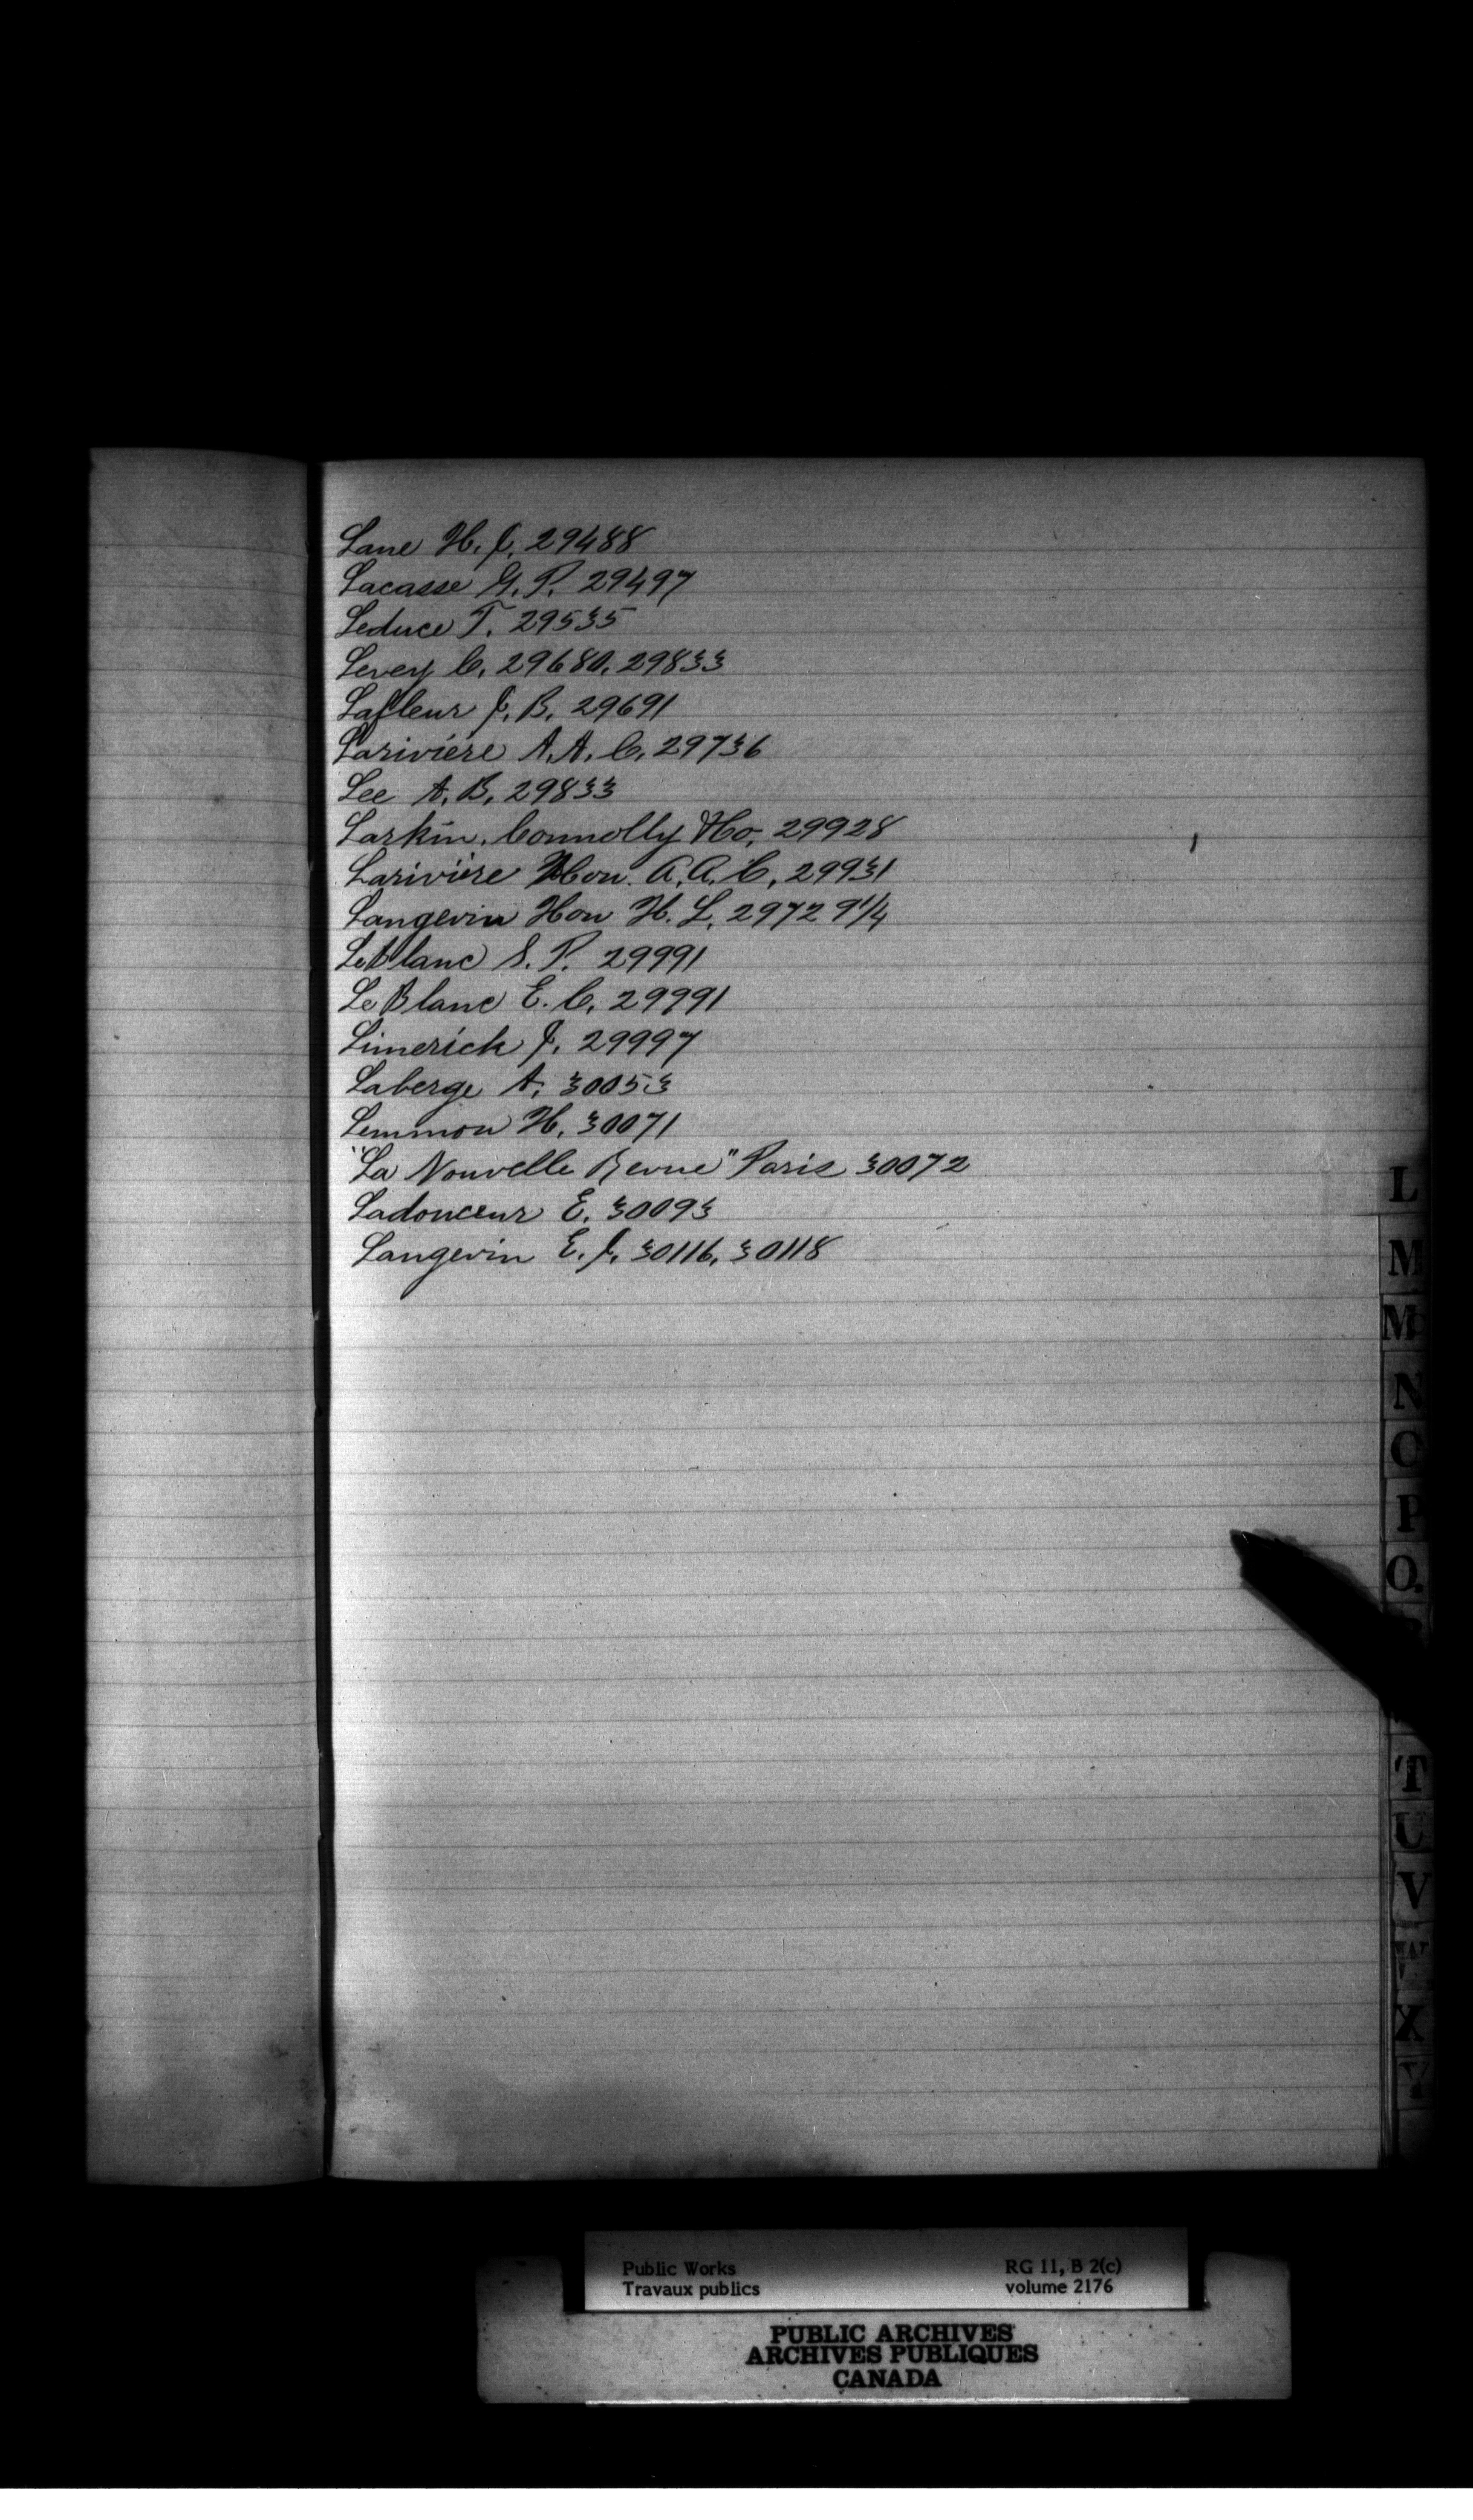 Lane H. J. 29488
Lacasse G. P. 29497
Leduce T. 29535
Levey C. 29680, 29833
Lafleur J. B. 29691
Larivière A. A. C. 29736
Lee A. B. 29833
Larkin, Connolly & Co, 29928
Larivière Hon. A. A. C, 29931
Langevin Hon H. L. 29729 1/4
LeBlanc S. P. 29991
LeBlanc E. C. 29991
Limerick J. 29997
Laberge A. 30053
Lemmon H. 30071
"La Nouvelle Revue" Paris 30072
Ladouceur E. 30093
Langevin E. J. 30116, 30118
L
M
Mc
N
O
P
Q
T
U
V
W
X
Y
Public Works RG 11, B 2(c)
Travaux publics volume 2176
PUBLIC ARCHIVES
ARCHIVES PUBLIQUES
CANADA